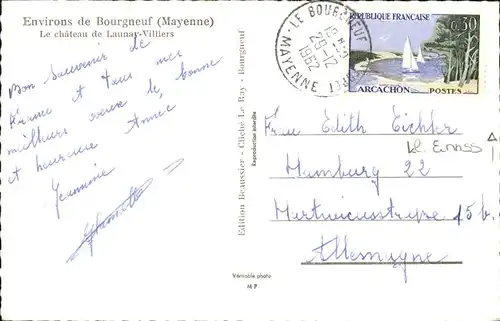 Environs de Bourgneuf (Mayenne)
Le château de Launay-Villiers
Bon souvenir de
France et tous mes
meilleurs vœux de bonne
et heureuse Année
Jeannine
Edition Beaussier - Cliché Le Ray - Bourgneuf
Reproduction interdite
LE BOURGNEUF
29-12
1962
MAYENNE
REPUBLIQUE FRANCAISE
0,30
ARCACHON
POSTES
Frau Edith Eichler
Hamburg 22
Martiniusstraße 15b.
Allemagne
Véritable photo
M P